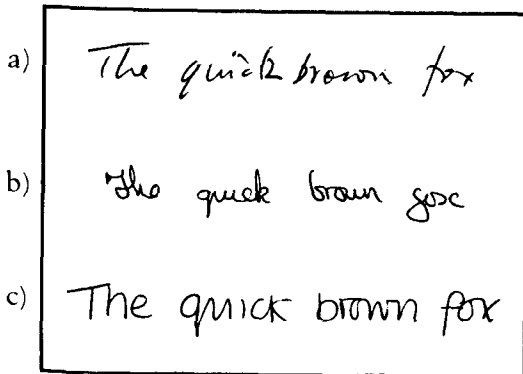 a) The quick brown fox
b) The quick brown fox
c) The quick brown fox